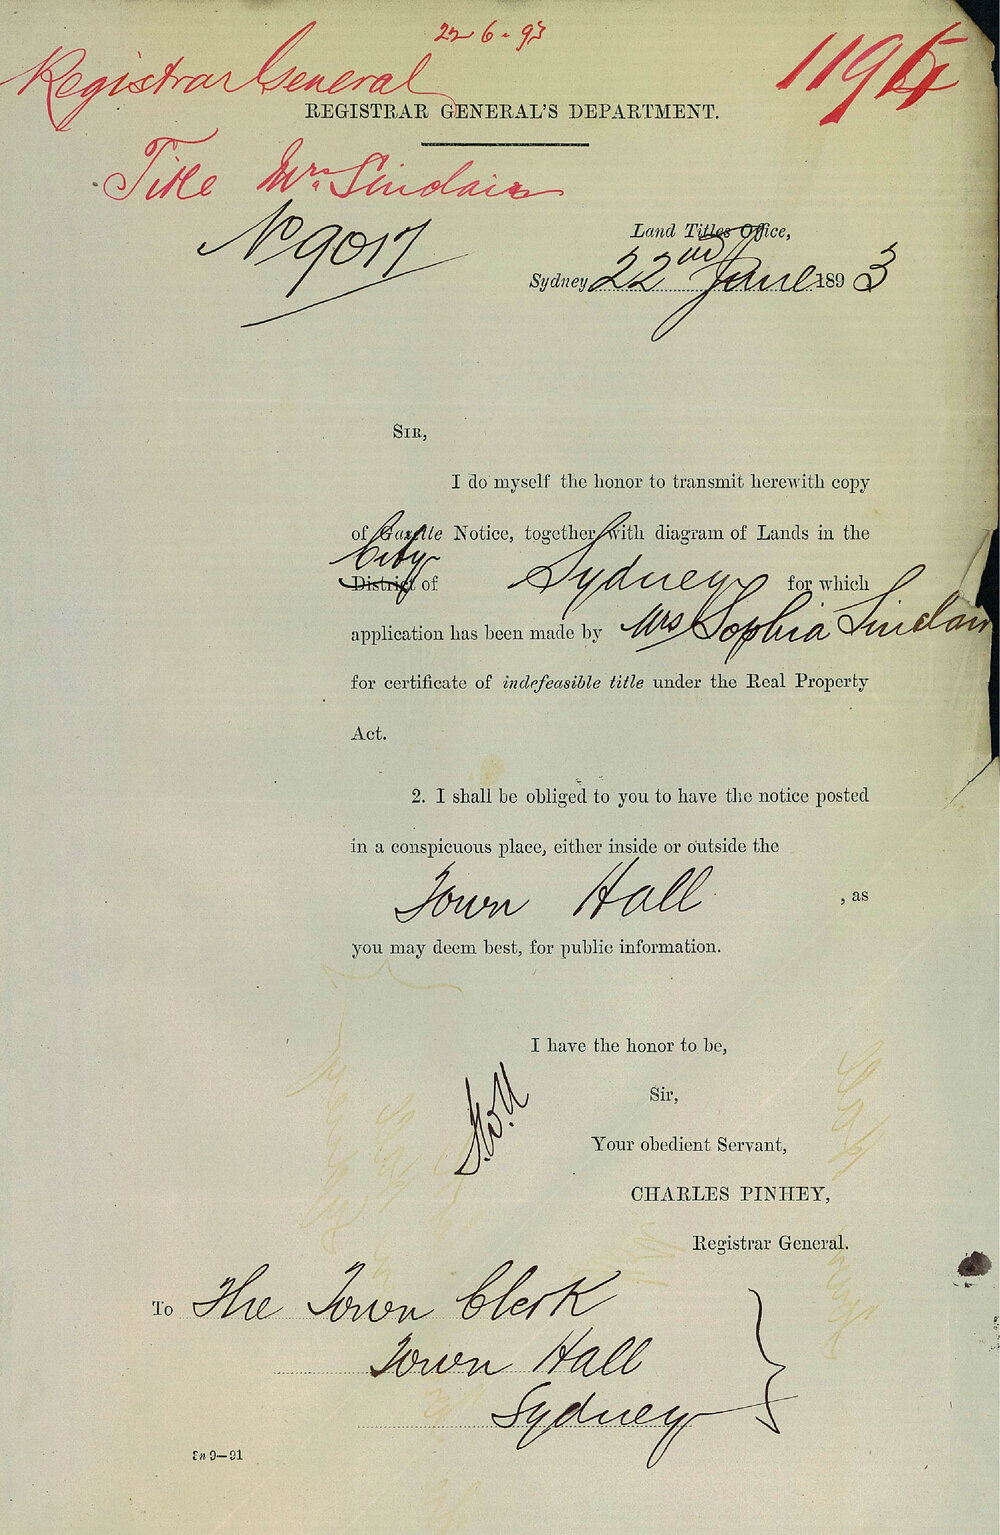 22-6-93
Registrar General
REGISTRAR GENERAL'S DEPARTMENT.
Title Mrs Sinclair
No 9017
Land Titles Office,
Sydney 22nd June 1893
SIR,
I do myself the honor to transmit herewith copy
of Gazette Notice, together with diagram of Lands in the
City
District of Sydney for which
application has been made by Mrs Sophia Sinclair
for certificate of indefeasible title under the Real Property
Act.
2. I shall be obliged to you to have the notice posted
in a conspicuous place, either inside or outside the
Town Hall , as
you may deem best, for public information.
I have the honor to be,
Sir,
Your obedient Servant,
CHARLES PINHEY,
Registrar General.
To The Town Clerk
Town Hall
Sydney